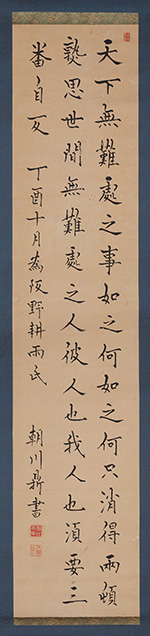 天下無難處之事如之何如之何只消得兩頓
熟思世間無難處之人彼人也我人也須要三
番自反 丁酉十月為阪野耕雨氏 朝川鼎書